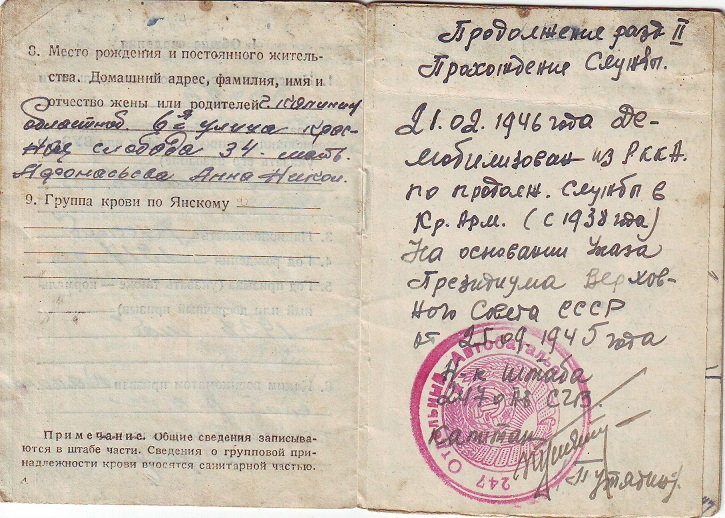 8. Место рождения и постоянного житель-
ства. Домашний адрес, фамилия, имя и
отчество жены или родителей г. Калинин
Областной 6я улица Крас-
ная слобода 34. мать
Афонасьева Анна Никол.
9. Группа крови по Янскому
Примечание. Общие сведения записыва-
ются в штабе части. Сведения о групповой при-
надлежности крови вносятся санитарной частью.
Продолжение разд II
Прохождение Службы.
21.02.1946 года Де-
мобилизован из РККА.
по продолж. службы в
Кр. Арм. (с 1938 года)
На основании Указа
Президиума Верхов-
ного Совета СССР
от 25.09.1945 года
Н-к штаба
247 о АБ СГВ.
Капитан
247 Отдельный Автобатальон